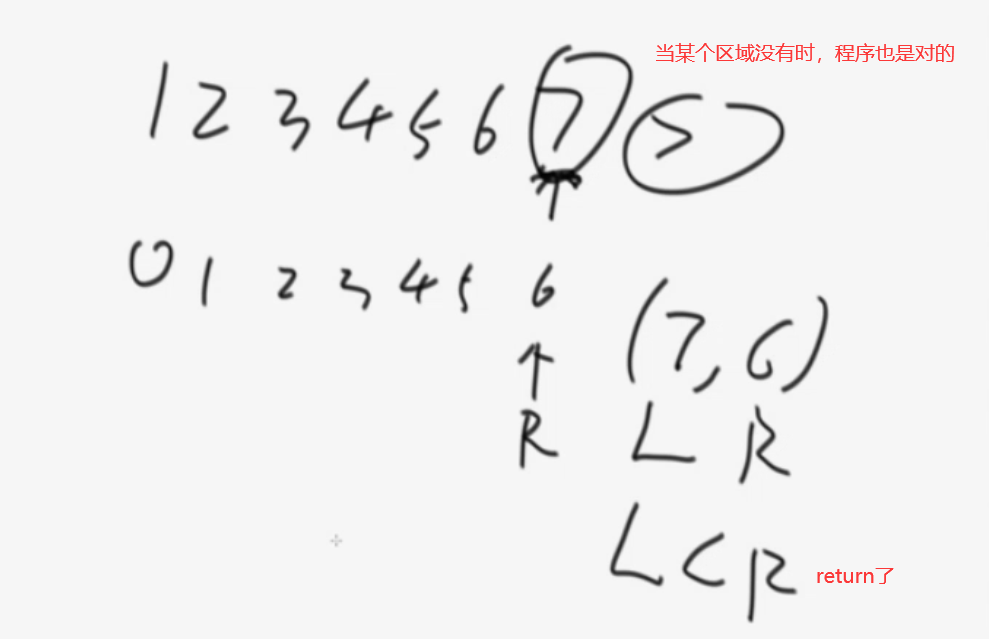 当某个区域没有时，程序也是对的
1 2 3 4 5 6 7 >
0 1 2 3 4 5 6
(7, 6)
R L R
L < R return了